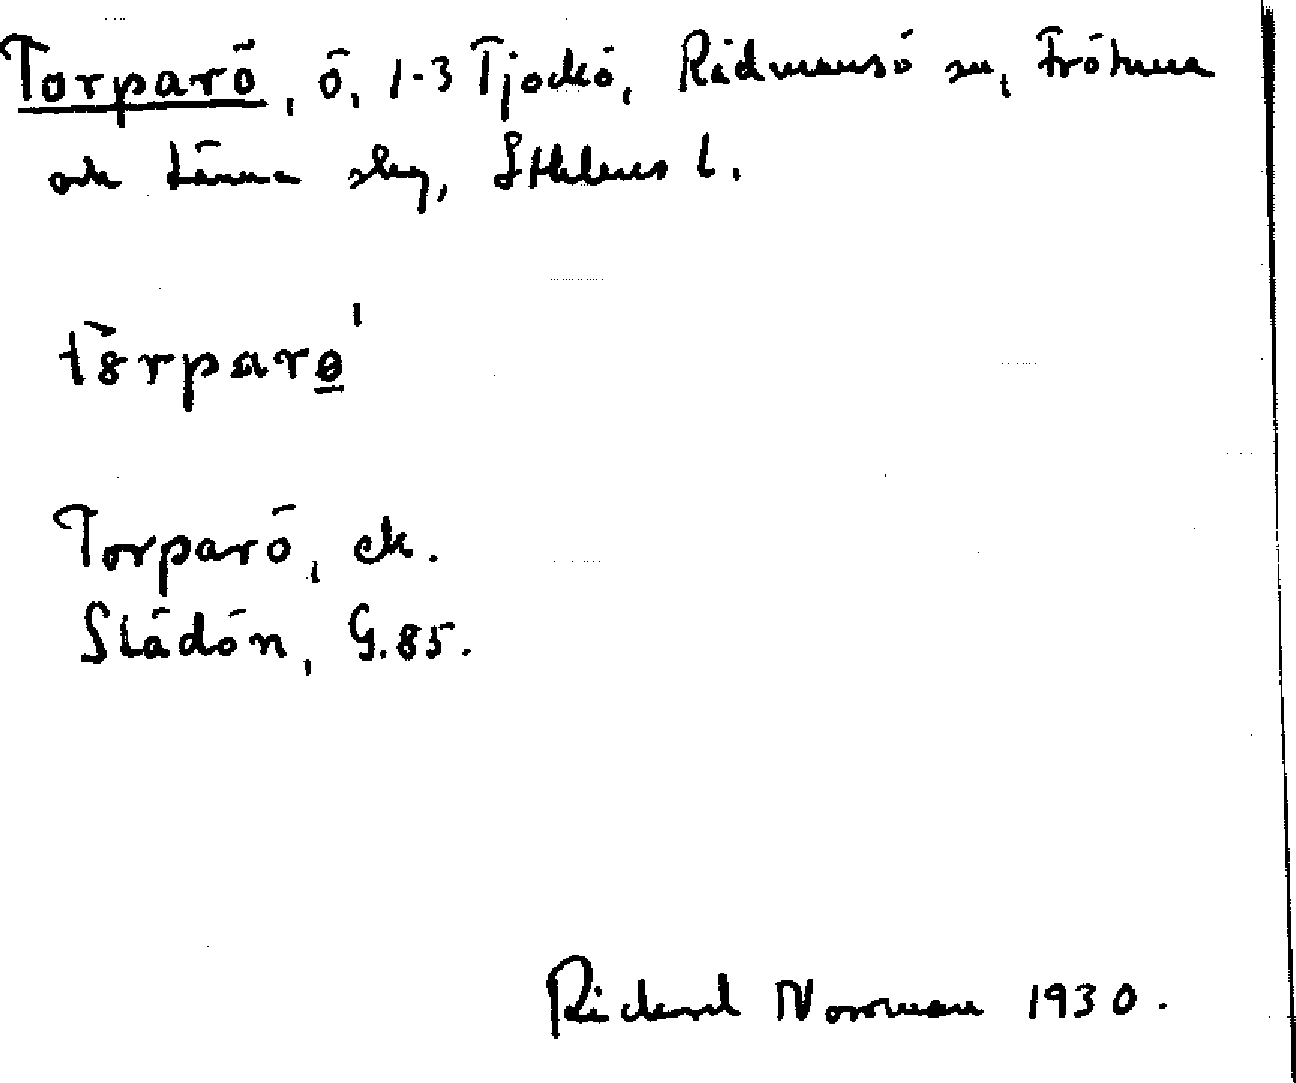 Torparö, ö, 1-3 Tjockö, Rådmansö sn, Frötuna
och Länna slg, Sthlms l.
tŏrparø̱ˈ
Torparö, ek.
Slädön, G.85.
Rickard Norrman 1930.